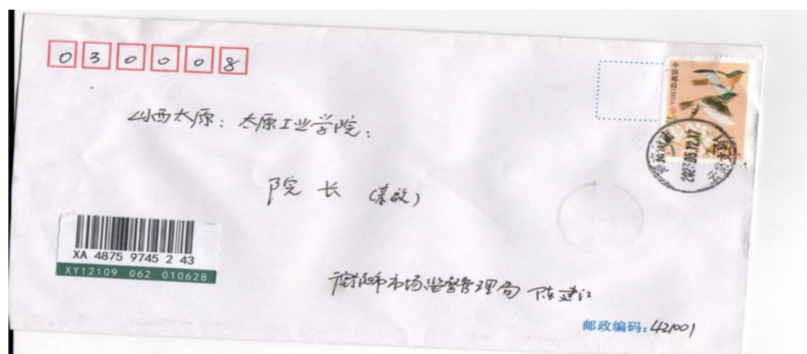 030008
中国邮政
山西太原：太原工业学院：
院长（亲启）
XA 4875 9745 2 43
XY12109 062 010628
衡阳市市场监督管理局 陈建江
邮政编码：421001